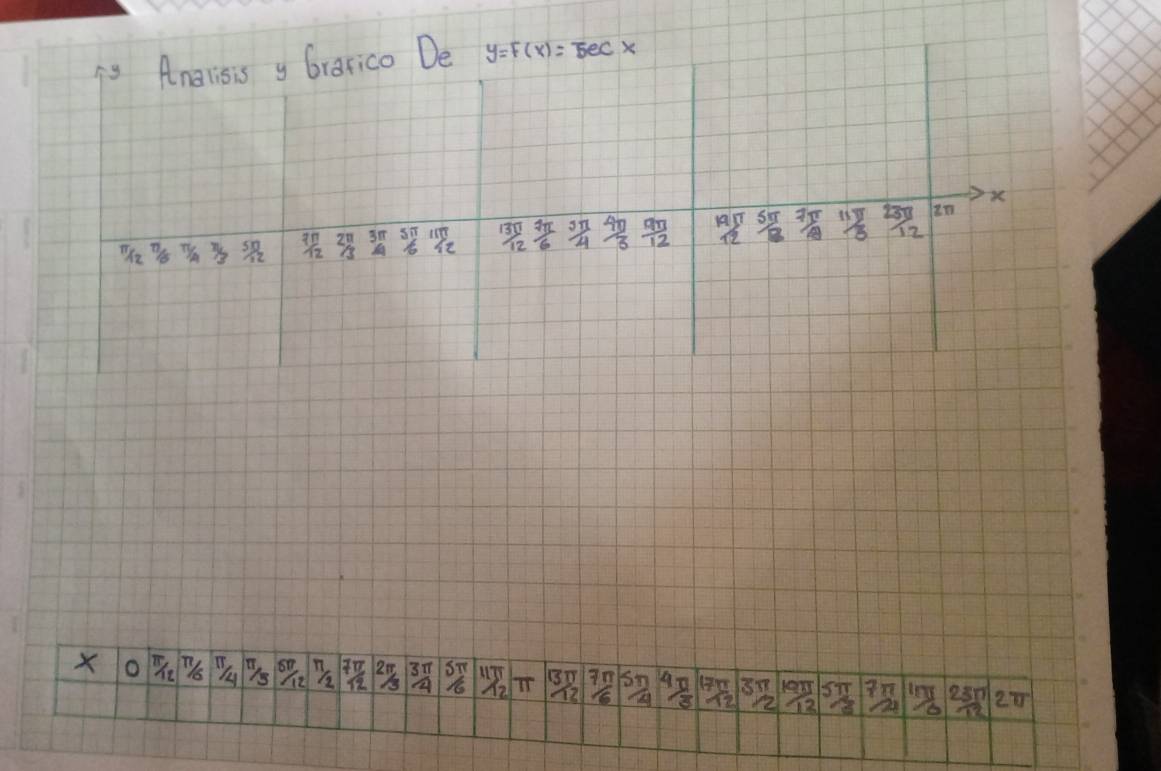 y Analisis y Grafico De y=F(x)= Sec x
x
π/12 π/6 π/4 π/3 5π/12 7π/12 2π/3 3π/4 5π/6 11π/12 13π/12 7π/6 5π/4 4π/3 19π/12 5π/3 23π/12 2π
x 0 π/12 π/6 π/4 π/3 5π/12 π/2 7π/12 2π/3 3π/4 5π/6 11π/12 π 13π/12 7π/6 5π/4 4π/3 17π/12 3π/2 19π/12 5π/3 7π/4 11π/6 23π/12 2π